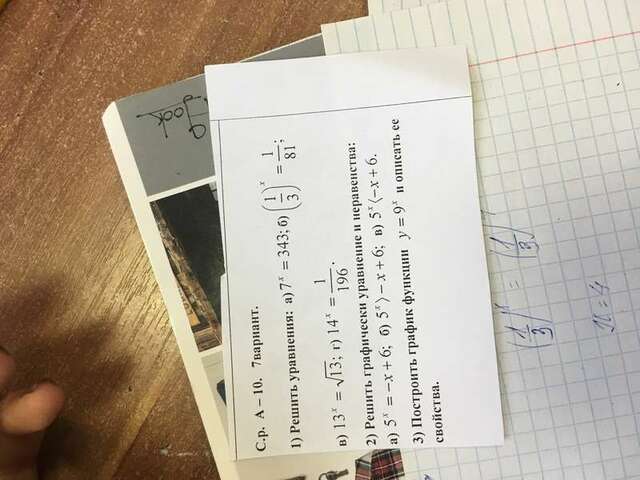 С.р. А – 10. 7вариант.
1) Решить уравнения: а) 7^x = 343; б) (1/3)^x = 1/81;
в) 13^x = √13; г) 14^x = 1/196.
2) Решить графически уравнение и неравенства:
а) 5^x = −x + 6; б) 5^x ⟩ − x + 6; в) 5^x ⟨ −x + 6.
3) Построить график функции y = 9^x и описать ее
свойства.
(1/3)^x = (1/3)
x = 4